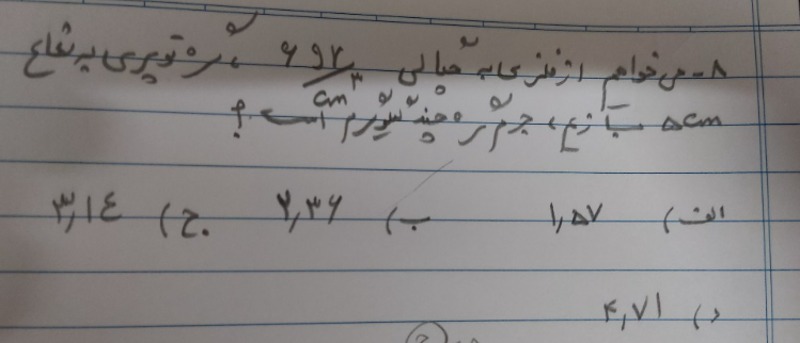 ۸- می خواهیم از فلزی به چگالی ۶ gr/cm³، کره توپری به شعاع
۵cm بسازیم، جرم کره چند کیلوگرم است؟
الف) ۱,۵۷ ب) ۲,۳۶ ج) ۳,۱۴
د) ۴,۷۱